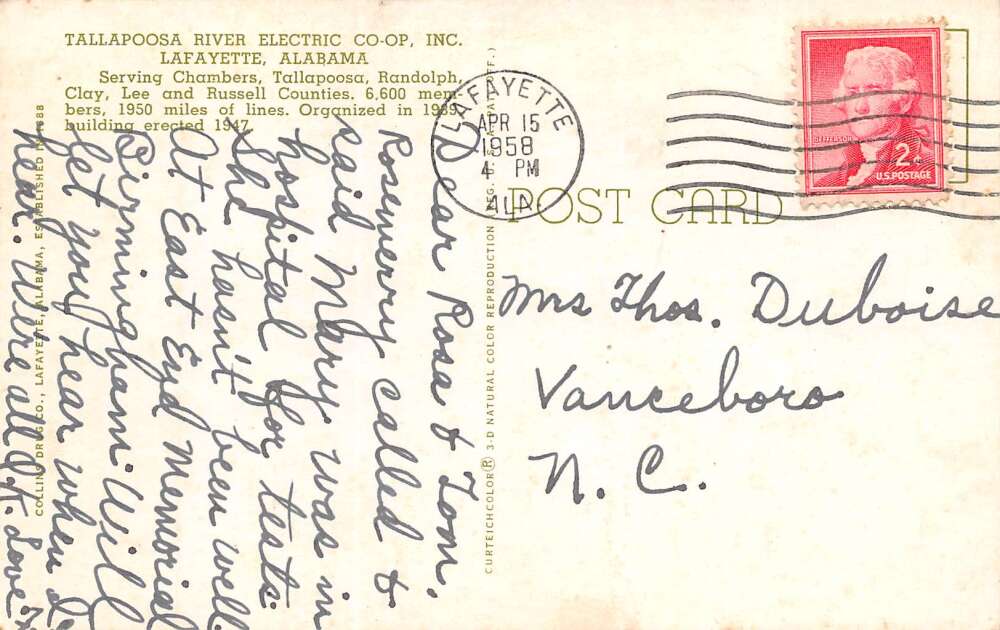 TALLAPOOSA RIVER ELECTRIC CO-OP, INC.
LAFAYETTE, ALABAMA
Serving Chambers, Tallapoosa, Randolph,
Clay, Lee and Russell Counties. 6,600 mem-
bers, 1950 miles of lines. Organized in 1939,
building erected 1947.
LAFAYETTE
APR 15
1958
4 PM
ALA.
JEFFERSON
2¢
U.S. POSTAGE
POST CARD
Dear Rosa & Tom,
Rosewerry called &
said Mary was in
hospital for tests.
She hasn't been well.
At East End Memorial
Birmingham. Will
let you hear when I
hear. We're all O.K. Love
Mrs Thos. Duboise
Vanceboro
N. C.
COLLINS DRUG CO., LAFAYETTE, ALABAMA, ESTABLISHED IN 1888
CURTEICHCOLOR® 3-D NATURAL COLOR REPRODUCTION REG. U.S.A. PAT. OFF.)